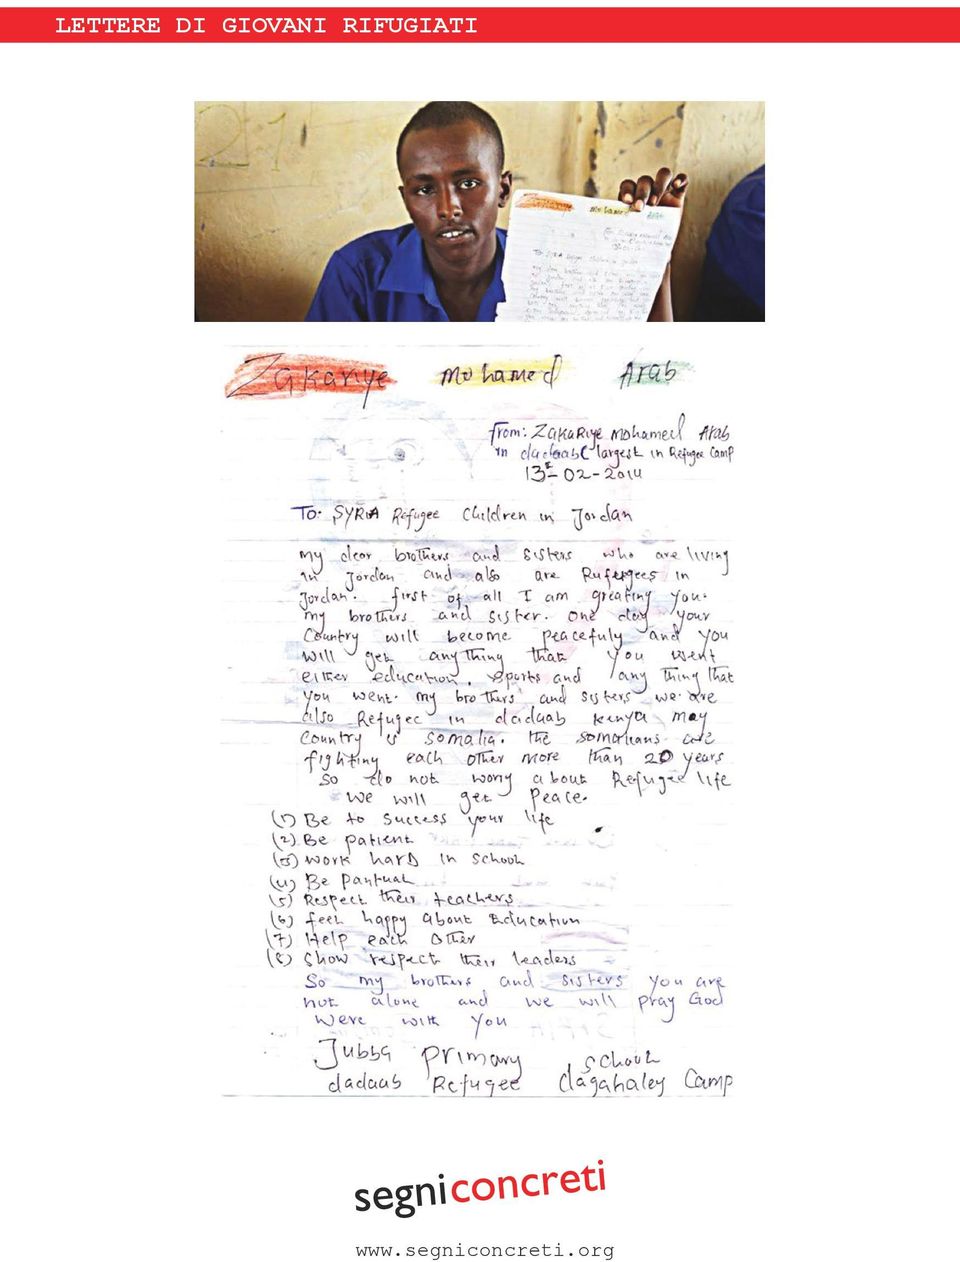 LETTERE DI GIOVANI RIFUGIATI
21
Zakariye Mohamed Arab
From: ZakaRiye Mohamed Arab
in dadaab largest in Refugee Camp
13-02-2014
To: SYRIA Refugee children in Jordan
my dear brothers and sisters who are living
in Jordan and also are Rufergees in
Jordan. first of all I am greating you.
my brothers and sister. one day your
Country will become peacefuly and you
will get any thing that you went
either education, sports and any thing that
you went. my brothers and sisters we are
also Refugee in dadaab kenya may
Country is somalia. the somalians are
fighting each other more than 20 years
so do not worry about Refugee life
we will get peace.
(1) Be to success your life
(2) Be patient
(3) work hard in school
(4) Be pantual
(5) Respect their teachers
(6) feel happy about Education
(7) Help each other
(8) show respect their leaders
So my brothers and sisters you are
not alone and we will pray God
were with you
Jubba primary school
dadaab Refugee dagahaley Camp
segniconcreti
www.segniconcreti.org